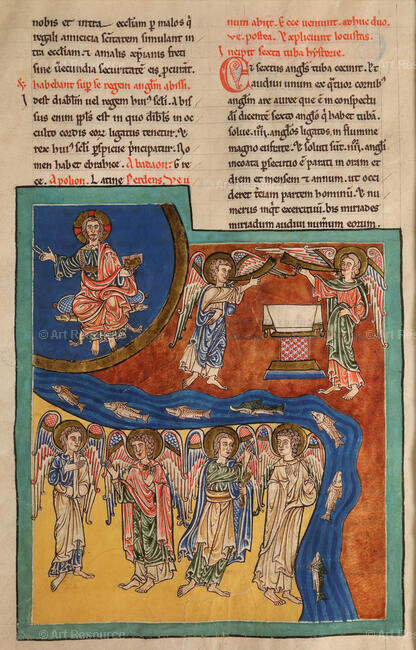 nobis et intra eccliam p malos q
regali amicicia se
tra eccliam et amalis xp̄ianis freti
sine uerecundia securitate eis p̄curant.
habebant sup se regem anglm abissi.
Idest diablm uel regem hui' scli. Abis
sus enim ppls est in quo diabls in oc
culto cordis eor ligatus tenetur. &
rex hui' scli pspicue principatur. No
men habet ebraice. Abadaon. Gre
ce. Apolion. Latine Perdens. Ve u
num abiit. Ecce ueniunt adhuc duo.
ve. postea. Explicunt locustas.
Incipit sexta tuba hystorie.
Et sextus angls tuba cecinit. Et
audiui unum ex quatuor cornib'
anglm are auree que ē in conspectu
di dicentē sexto anglo q̄ habet tubā.
solue .iiii. anglos ligatos in flumine
magno eufrate. Et soluti sūt .iiii. angli
parati in oram et
diem et mensem et annum. ut occi
deret terciam partem hominū. Et nu
merus exercituū. bis miriades
miriadum audiui numerum eorum.
© Art Resource
© Art Resource
© Art Resource
© Art Resource